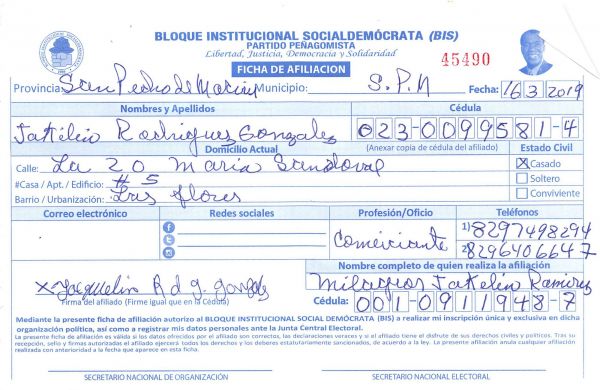 BLOQUE INSTITUCIONAL SOCIALDEMÓCRATA (BIS)
PARTIDO PEÑAGOMISTA
Libertad, Justicia, Democracia y Solidaridad
45490
FICHA DE AFILIACION
Provincia: San Pedro de Macoris Municipio: S.P.M Fecha: 16 3 2019
Nombres y Apellidos Cédula
Jakelin Rodriguez Gonzalez 023-0099581-4
Domicilio Actual (Anexar copia de cédula del afiliado) Estado Civil
Calle: La 20 Maria Sandoval X Casado
#Casa / Apt. / Edificio: #5 Soltero
Barrio / Urbanización: Las flores Conviviente
Correo electrónico Redes sociales Profesión/Oficio Teléfonos
Comerciante 1) 8297498294
2) 8296406647
Nombre completo de quien realiza la afiliación
X Jaquelin R d g. gonzalez Milagros Jakelin Ramirez
Firma del afiliado (Firme igual que en la Cédula) Cédula: 001-0911948-7
Mediante la presente ficha de afiliación autorizo al BLOQUE INSTITUCIONAL SOCIAL DEMÓCRATA (BIS) a realizar mi inscripción única y exclusiva en dicha
organización política, así como a registrar mis datos personales ante la Junta Central Electoral.
La presente ficha de afiliación es válida si los datos ofrecidos por el afiliado son correctos, las declaraciones veraces y si el afiliado tiene el disfrute de sus derechos civiles y políticos. Tras su
recepción, sello y firmas autorizadas el afiliado ejercerá todos los derechos y los deberes estatutariamente sancionados, de acuerdo a la ley. La presente afiliación anula cualquier afiliación
realizada con anterioridad a la fecha que aparece en esta ficha.
SECRETARIO NACIONAL DE ORGANIZACIÓN SECRETARIO NACIONAL ELECTORAL